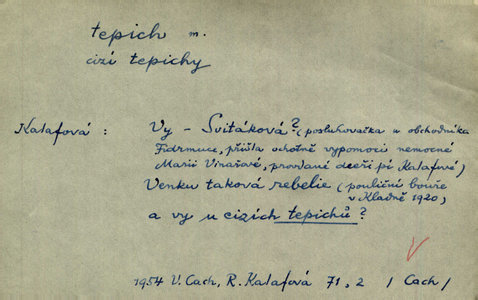 tepich m.
cizí tepichy
Kalafová : Vy - Svitáková? (posluhovačka u obchodníka
Fidrmuce, přišla ochotně vypomoci nemocné
Marii Vinařové, provdané dceři pí Kalafové)
Venku taková rebelie (pouliční bouře
v Kladně 1920)
a vy u cizích tepichů?
1954 V. Cach, R. Kalafová 71, 2 / Cach /